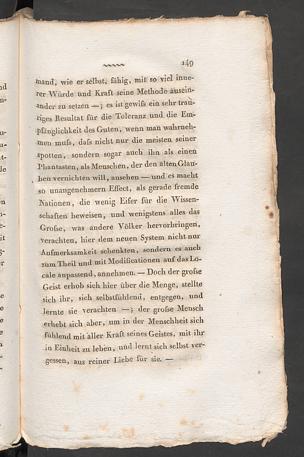 149
mand, wie er selbst, fähig, mit so viel inne-
rer Würde und Kraft seine Methode ausein-
ander zu setzen —; es ist gewiß ein sehr trau-
riges Resultat für die Toleranz und die Em-
pfänglichkeit des Guten, wenn man wahrneh-
men muß, daß nicht nur die meisten seiner
spotten, sondern sogar auch ihn als einen
Phantasten, als Menschen, der den alten Glau-
ben vernichten will, ansehen — und es macht
so unangenehmern Effect, als gerade fremde
Nationen, die wenig Eifer für die Wissen-
schaften beweisen, und wenigstens alles das
Große, was andere Völker hervorbringen,
verachten, hier dem neuen System nicht nur
Aufmerksamkeit schenkten, sondern es auch
zum Theil und mit Modificationen auf das Lo-
cale anpassend, annehmen. — Doch der große
Geist erhob sich hier über die Menge, stellte
sich ihr, sich selbstfühlend, entgegen, und
lernte sie verachten —; der große Mensch
erhebt sich aber, um in der Menschheit sich
fühlend mit aller Kraft seines Geistes, mit ihr
in Einheit zu leben, und lernt sich selbst ver-
gessen, aus reiner Liebe für sie. —